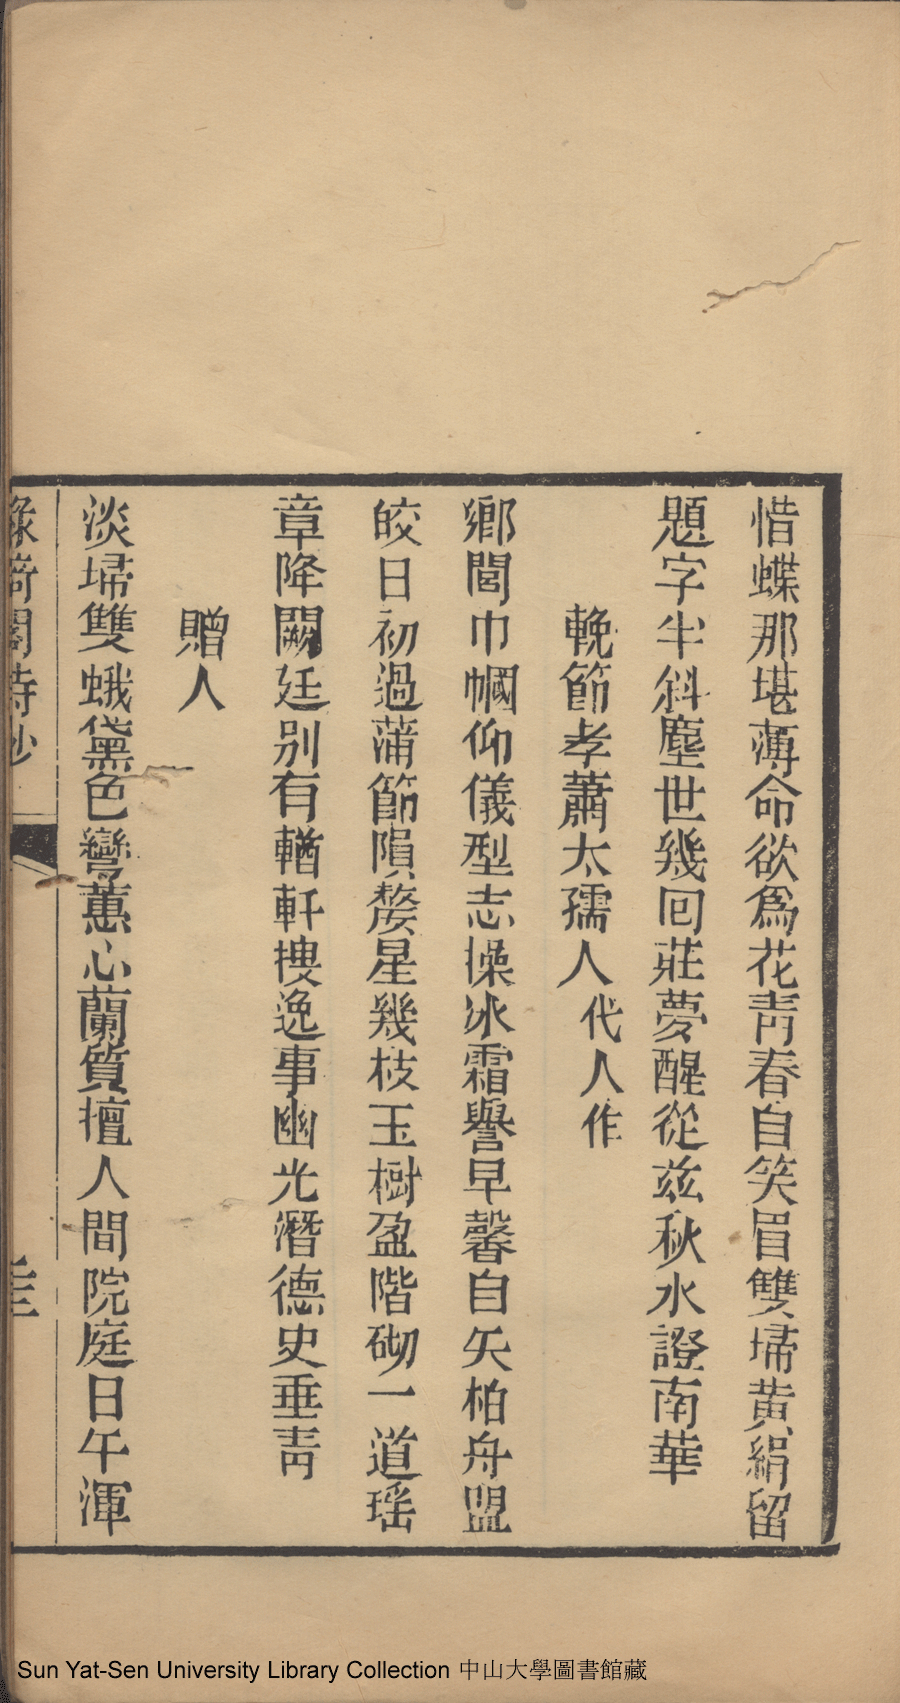 惜蝶那堪薄命欲爲花靑春自笑眉雙埽黃絹留
題字半斜塵世幾回莊夢醒從茲秋水證南華
輓節孝蕭太孺人代人作
鄉閭巾幗仰儀型志操冰霜譽早馨自矢柏舟盟
皎日初過蒲節隕婺星幾枝玉樹盈階砌一道瑤
章降闕廷别有輶軒搜逸事幽光潛德史垂靑
贈人
淡埽雙蛾黛色彎蕙心蘭質擅人間院庭日午渾
綠猗閣詩抄
Sun Yat-Sen University Library Collection 中山大學圖書館藏